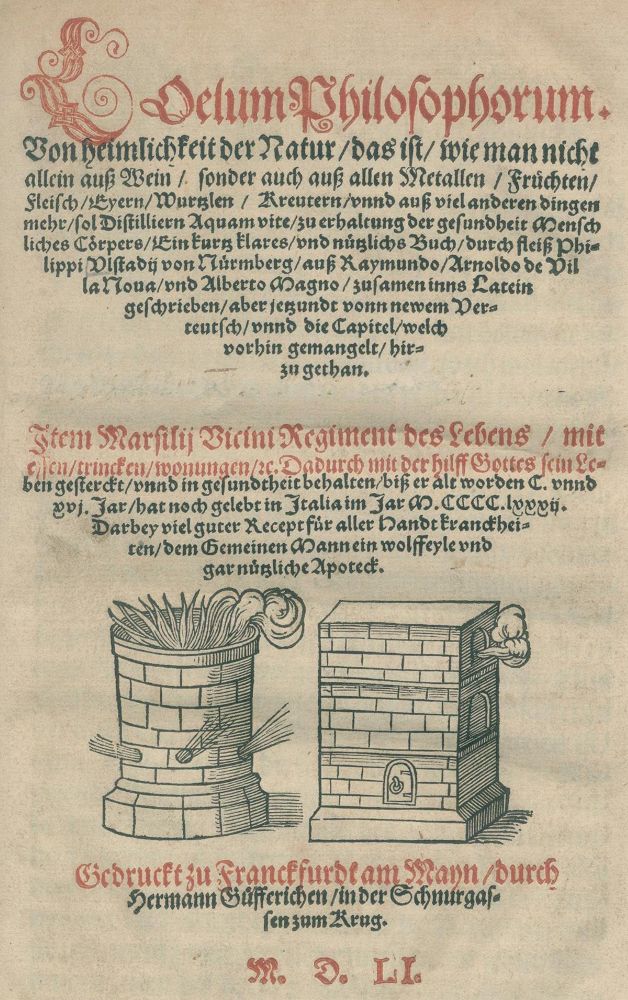 COelum Philosophorum.
Von heimlichkeit der Natur / das ist / wie man nicht
allein auß Wein / sonder auch auß allen Metallen / Früchten /
Fleisch / Eyern / Wurtzlen / Kreutern / vnnd auß viel anderen dingen
mehr / sol Distilliern Aquam vite / zu erhaltung der gesundheit Mensch
liches Cörpers / Ein kurtz klares / vnd nützlichs Buch / durch fleiß Phi-
lippi Vlstadij von Nürmberg / auß Raymundo / Arnoldo de Vil
la Noua / vnd Alberto Magno / zusamen inns Latein
geschrieben / aber jetzundt vonn newem Ver-
teutsch / vnnd die Capitel / welch
vorhin gemangelt / hir-
zu gethan.
Item Marsilij Vicini Regiment des Lebens / mit
essen / trincken / wonungen / ꝛc. Dadurch mit der hilff Gottes sein Le-
ben gesterckt / vnnd in gesundtheit behalten / biß er alt worden C. vnnd
xvj. Jar / hat noch gelebt in Italia im Jar M.CCCC.lxxxij.
Darbey viel guter Recept für aller Handt kranckhei-
ten / dem Gemeinen Mann ein wolffeyle vnd
gar nützliche Apoteck.
Gedruckt zu Franckfurdt am Mayn / durch
Hermann Gülfferichen / in der Schnurgas-
sen zum Krug.
M. D. LI.